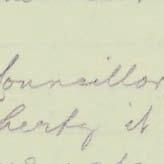 Councillor
herty it